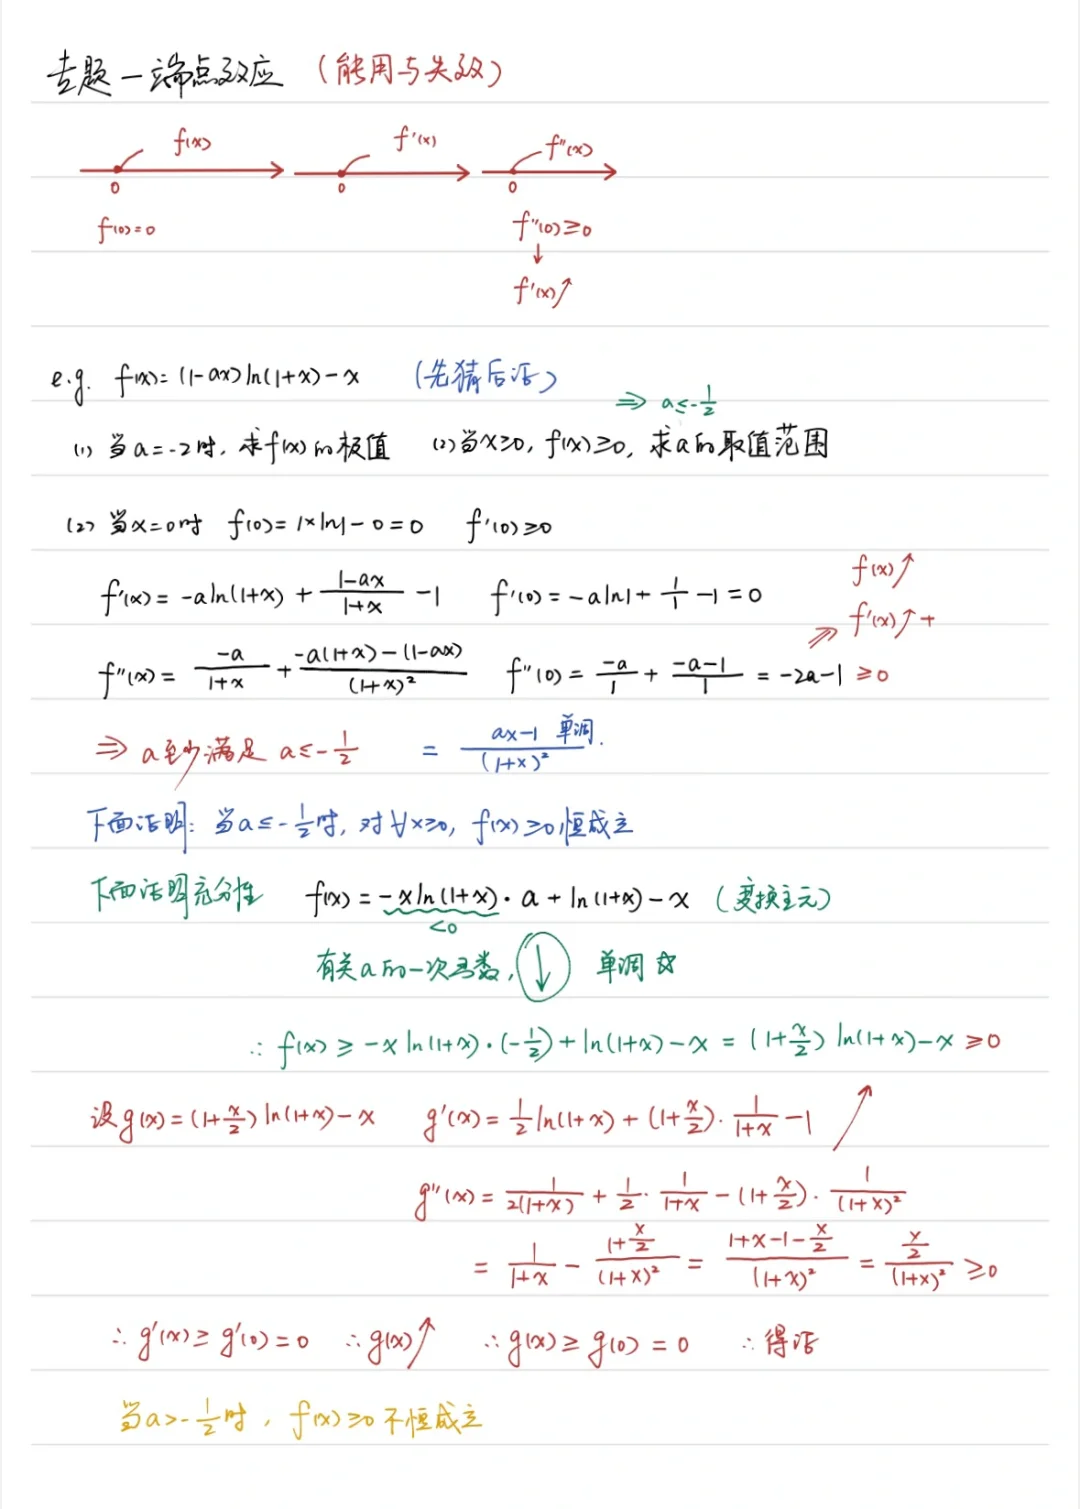 专题一 端点效应 (能用与失效)
f(x) f'(x) f''(x)
0 0 0
f(0)=0 f''(0)≥0
↓
f'(x)↗
e.g. f(x)=(1-ax)ln(1+x)-x (先猜后证)
⇒ a≤-1/2
(1) 当a=-2时, 求f(x)的极值 (2) 当x≥0, f(x)≥0, 求a的取值范围
(2) 当x=0时 f(0)=1×ln1-0=0 f'(0)≥0
f(x)↗
f'(x)=-aln(1+x)+(1-ax)/(1+x)-1 f'(0)=-aln1+1/1-1=0
⇒ f'(x)↗+
f''(x)=-a/(1+x)+(-a(1+x)-(1-ax))/(1+x)² f''(0)=-a/1+(-a-1)/1=-2a-1≥0
⇒ a至少满足 a≤-1/2 = (ax-1)/(1+x)² 单调.
下面证明: 当a≤-1/2时, 对∀x≥0, f(x)≥0恒成立
下面证明充分性 f(x)=-xln(1+x)·a+ln(1+x)-x (变换主元)
<0
有关a的一次函数, ↓ 单调☆
∴ f(x)≥-xln(1+x)·(-1/2)+ln(1+x)-x=(1+x/2)ln(1+x)-x≥0
设g(x)=(1+x/2)ln(1+x)-x g'(x)=1/2ln(1+x)+(1+x/2)·1/(1+x)-1 ↗
g''(x)=1/(2(1+x))+1/2·1/(1+x)-(1+x/2)·1/(1+x)²
=1/(1+x)-(1+x/2)/(1+x)²=(1+x-1-x/2)/(1+x)²=(x/2)/(1+x)²≥0
∴ g'(x)≥g'(0)=0 ∴g(x)↗ ∴g(x)≥g(0)=0 ∴得证
当a>-1/2时, f(x)≥0不恒成立